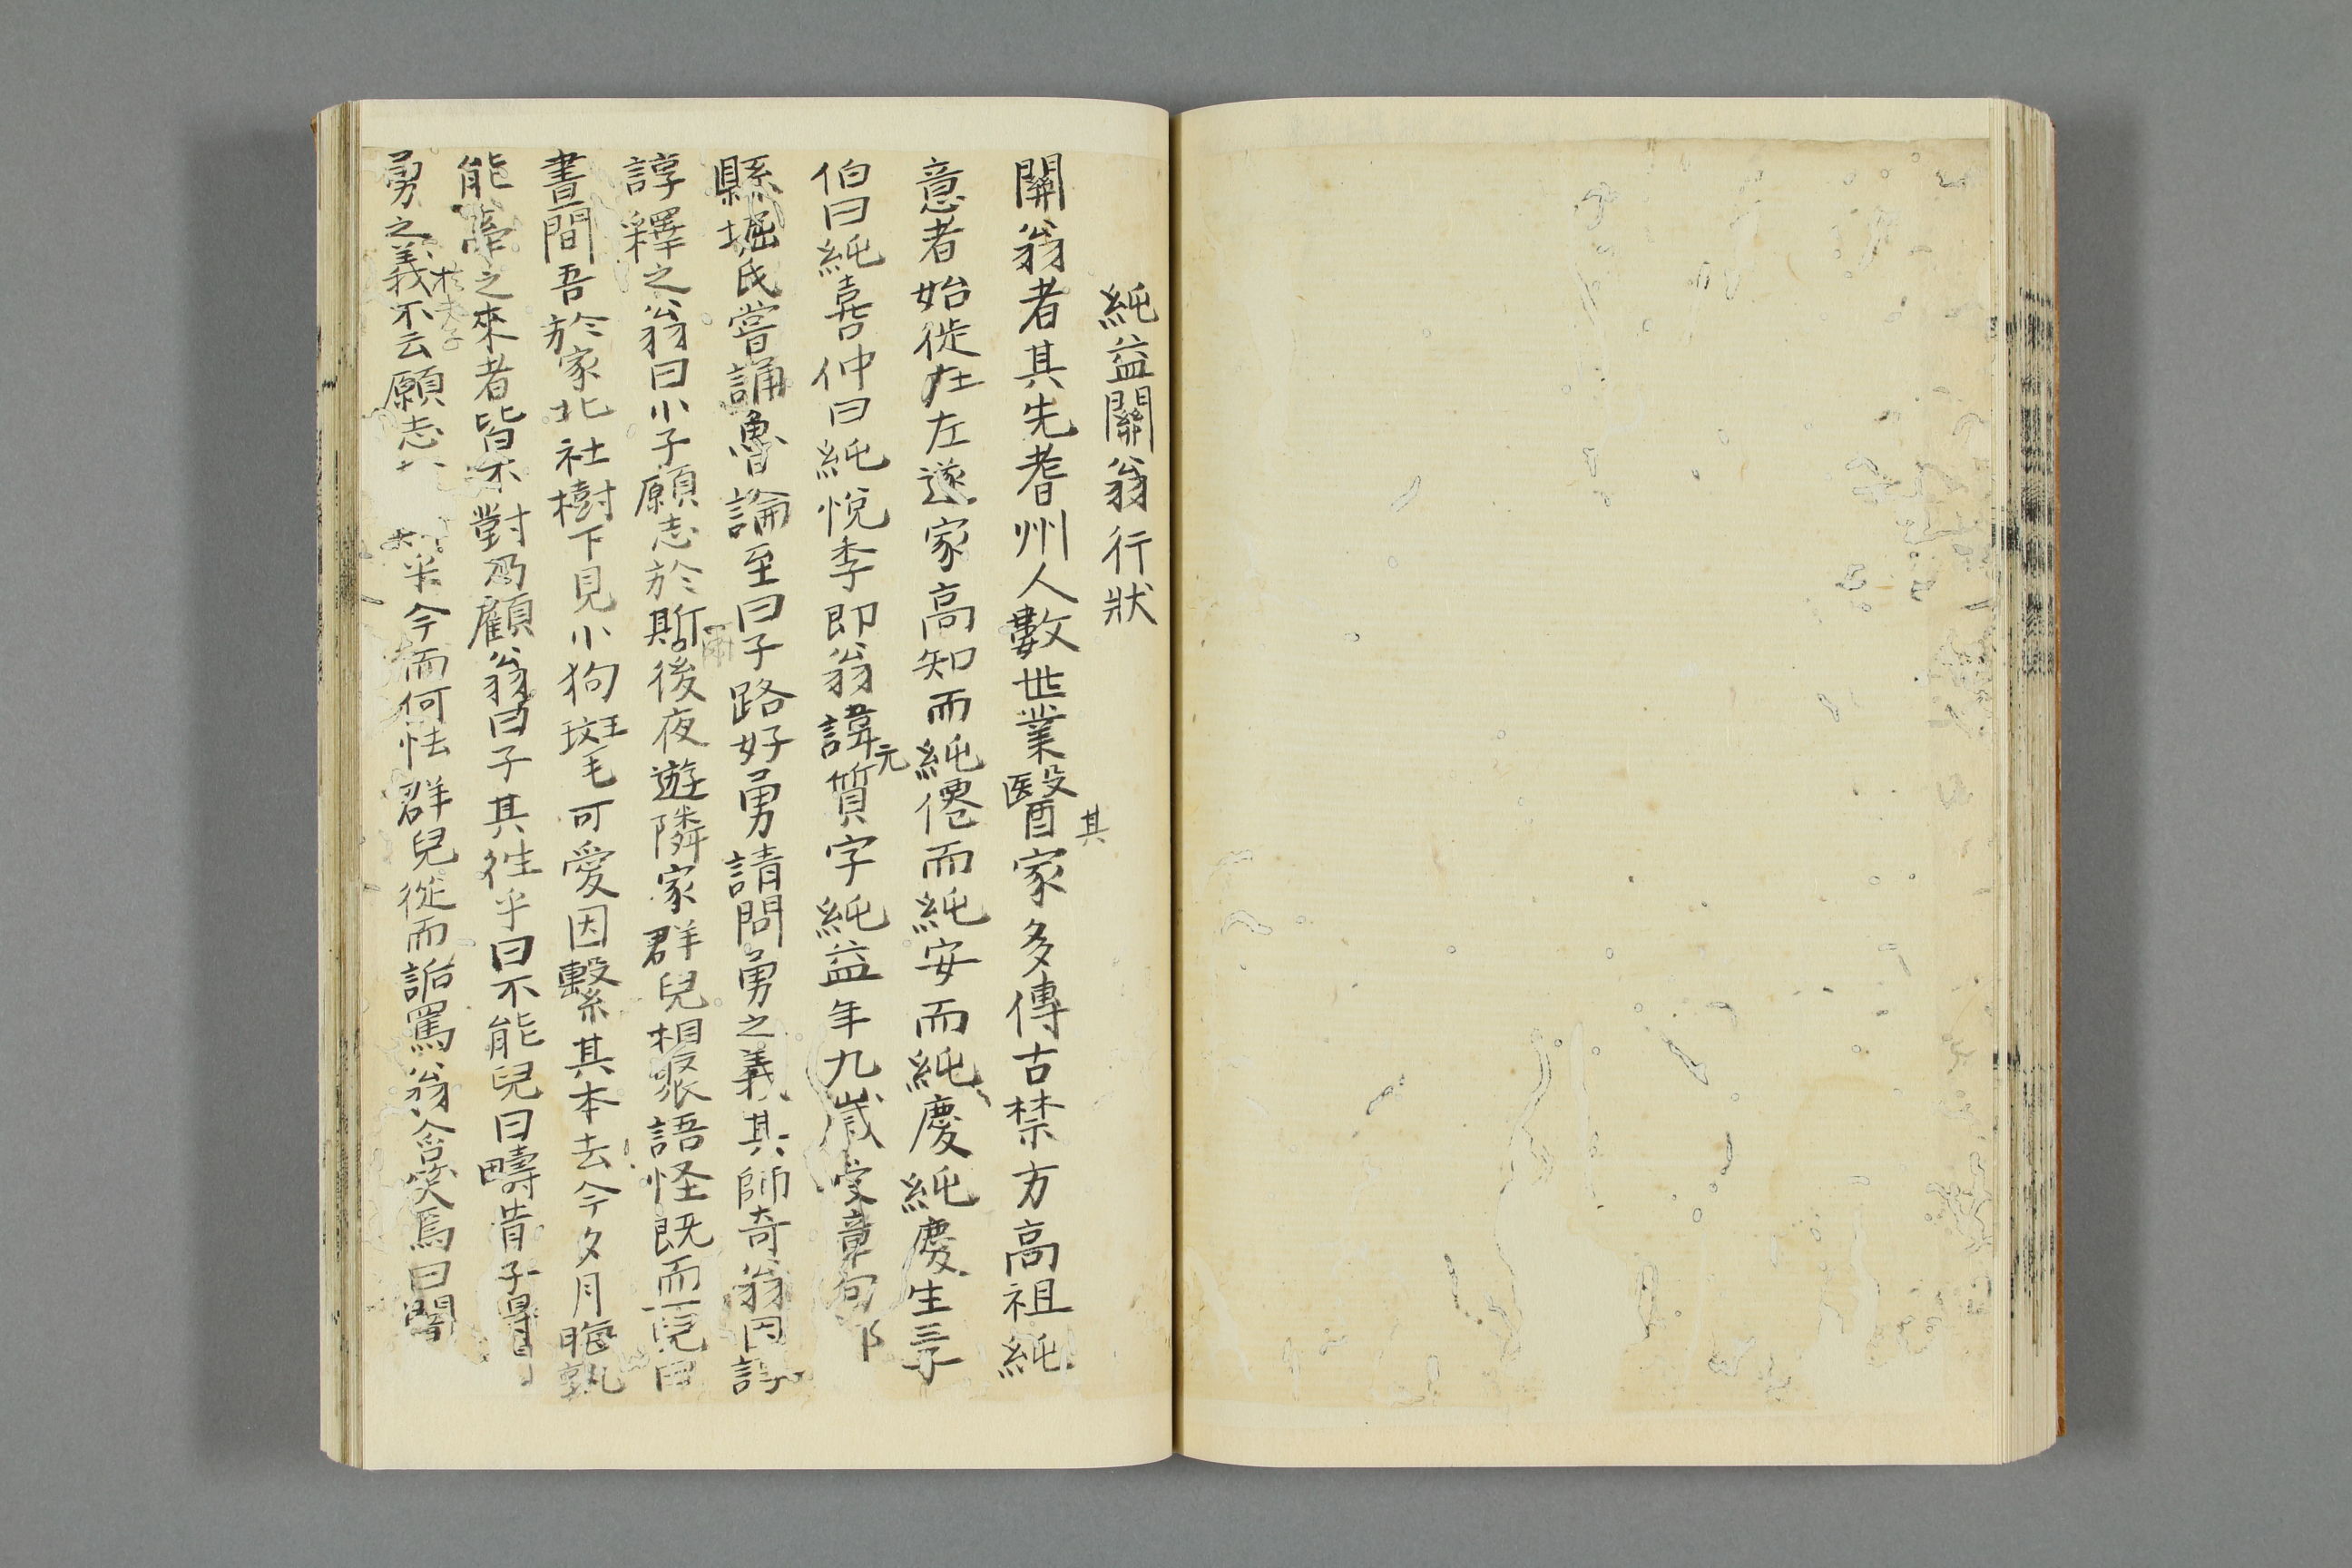 純益關翁行狀
關翁者其先耆州人數世業醫其家多傳古禁方高祖純
意者始徙在左遂家高知而純僊而純安而純慶純慶生三子
伯曰純喜仲曰純悅季即翁諱元質字純益年九歲受章句
縣堀氏嘗誦魯論至曰子路好勇請問勇之義其師奇翁因諄
諄釋之翁曰小子願志於斯爾後夜遊隣家群兒相聚語怪既而一兒曰
晝間吾於家北社樹下見小狗斑毛可愛因繫其本去今夕月晦孰
能牽之來者皆不對乃顧翁曰子其徃乎曰不能兒曰疇昔子學
勇之義於夫子不云願志 今而何怯群兒從而詬罵翁含笑焉曰